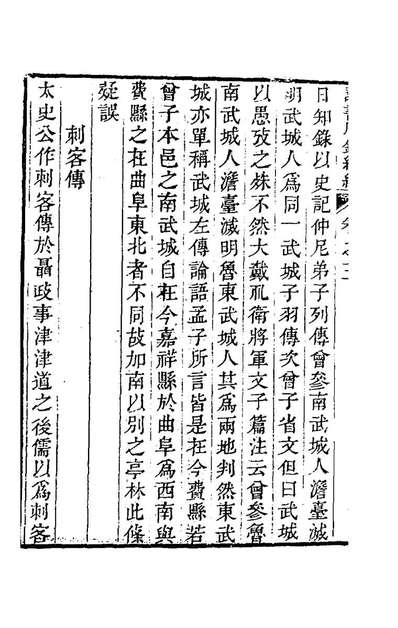 日知錄以史記仲尼弟子列傳曾參南武城人澹臺滅
明武城人爲同一武城子羽傳次曾子省文但曰武城
以愚攷之殊不然大戴禮衛將軍文子篇注云曾參魯
南武城人澹臺滅明魯東武城人其爲兩地判然東武
城亦單稱武城左傳論語孟子所言皆是在今費縣若
曾子本邑之南武城自在今嘉祥縣於曲阜爲西南與
費縣之在曲阜東北者不同故加南以別之亭林此條
疑誤
刺客傳
太史公作刺客傳於聶政事津津道之後儒以爲刺客